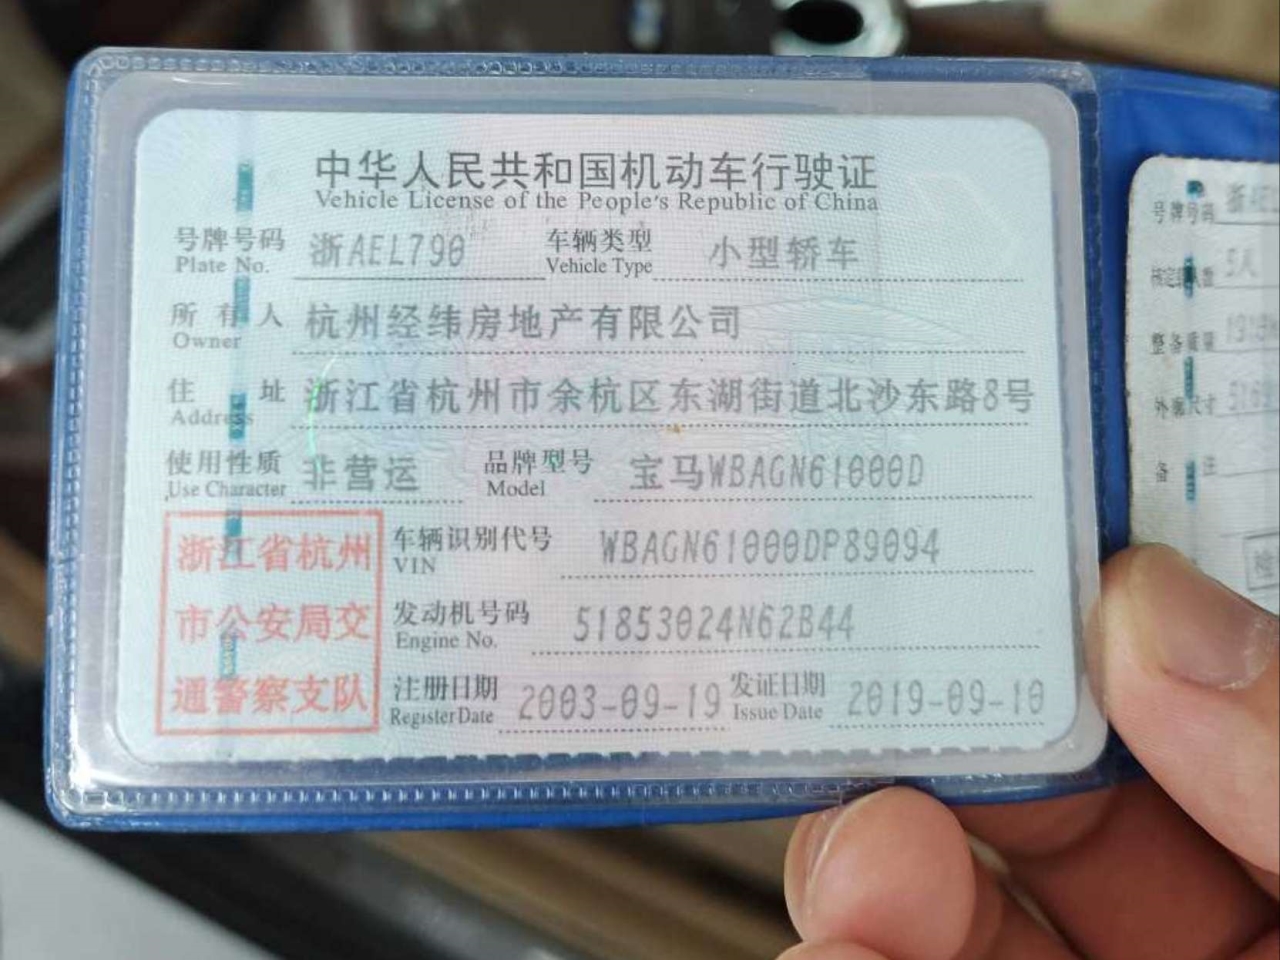 中华人民共和国机动车行驶证
Vehicle License of the People's Republic of China
号牌号码 浙AEL790 车辆类型 小型轿车
Plate No. Vehicle Type
所有人 杭州经纬房地产有限公司
Owner
住址 浙江省杭州市余杭区东湖街道北沙东路8号
Address
使用性质 非营运 品牌型号 宝马WBAGN61000D
Use Character Model
浙江省杭州
市公安局交
通警察支队
车辆识别代号 WBAGN61000DP89094
VIN
发动机号码 51853024N62B44
Engine No.
注册日期 2003-09-19 发证日期 2019-09-10
Register Date Issue Date
号牌号码 浙AE
核定载人数 5人
整备质量
外廓尺寸
备注